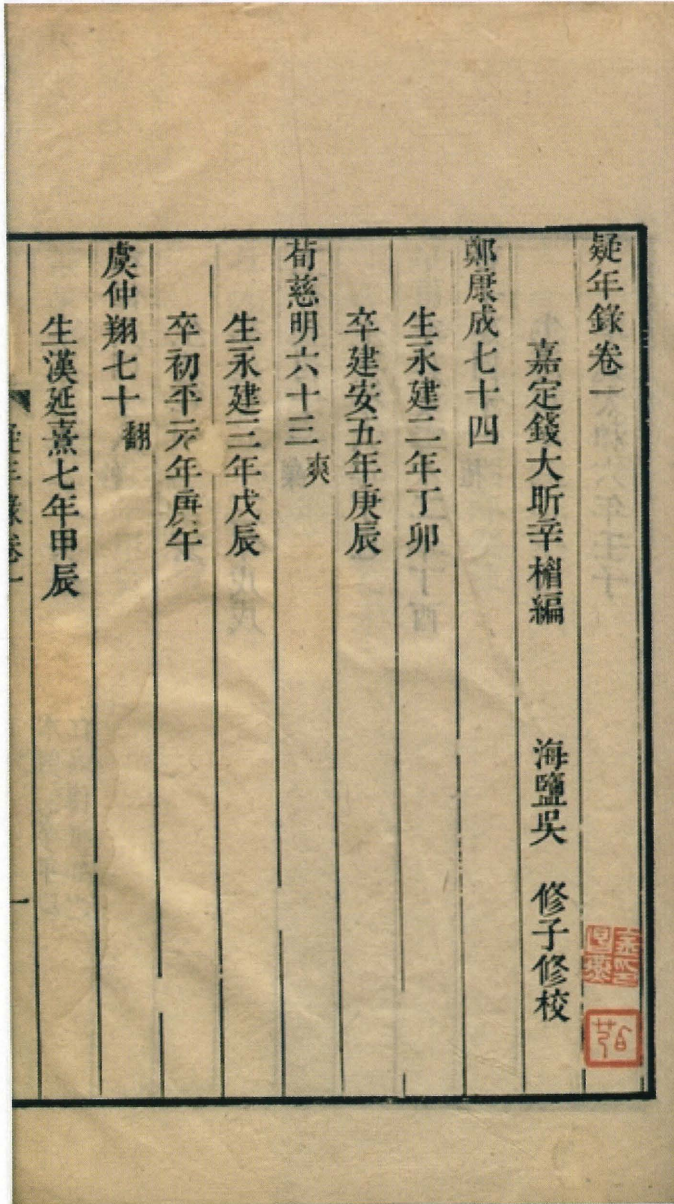 疑年錄卷一
嘉定錢大昕辛楣編　海鹽吳　修子修校
鄭康成七十四
生永建二年丁卯
卒建安五年庚辰
荀慈明六十三 爽
生永建三年戊辰
卒初平元年庚午
虞仲翔七十 翻
生漢延熹七年甲辰
疑年錄卷一　一